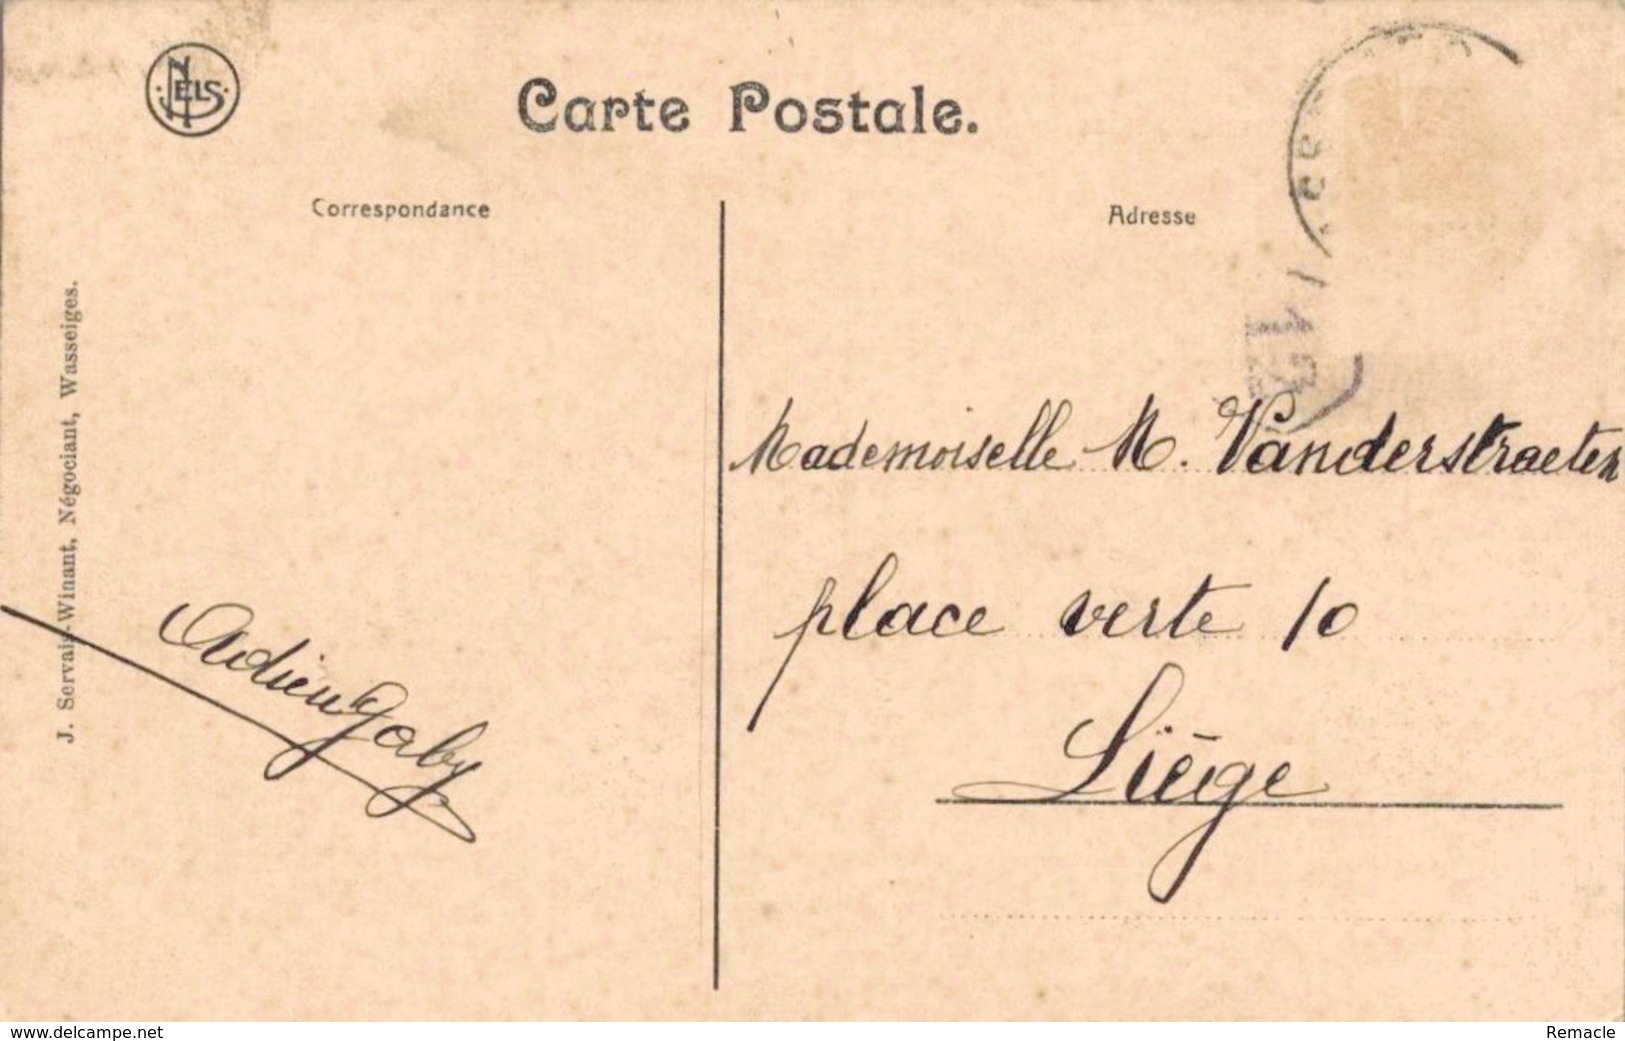 NELS
Carte Postale.
Correspondance
Adresse
J. Servais-Winant, Négociant, Wasseiges.
Mademoiselle M. Vanderstraeten
place verte 10
Liège
Adieu Gaby
www.delcampe.net
Remacle